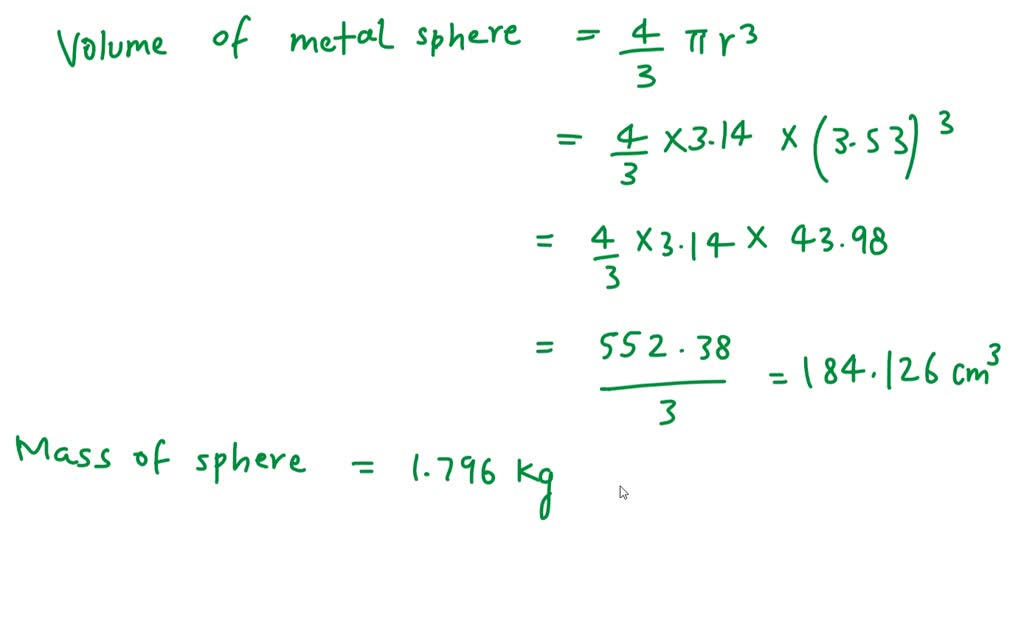 Volume of metal sphere = 4/3 π r³
= 4/3 × 3.14 × (3.53)³
= 4/3 × 3.14 × 43.98
= 552.38/3 = 184.126 cm³
Mass of sphere = 1.796 kg